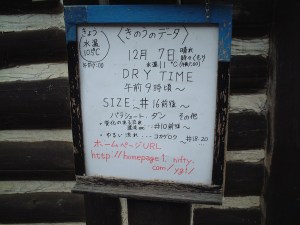 きょう
水温
10℃
〈きのうのデータ〉
12月 7日 晴れ
時々くもり
水温11℃
DRY TIME
午前9時頃〜
SIZE #16前後〜
パラシュート・ダン その他
#10前後〜
ゆるい流れ・・・コカゲロウ 〜#18.20
ホームページURL
http://homepage1.nifty.
com/